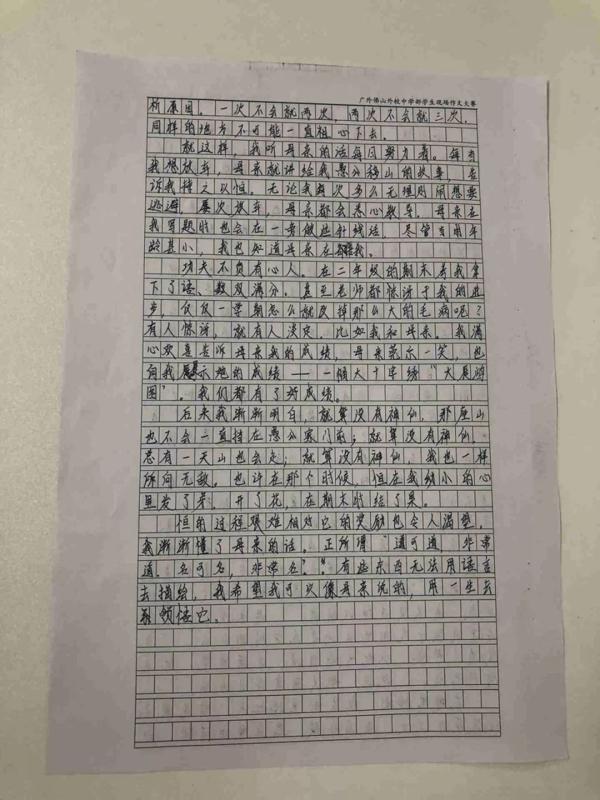 广外佛山外校中学部学生现场作文大赛
析原因。一次不会就两次，两次不会就三次，
同样的地方不可能一直粗心下去。
就这样，我听母亲的话每日努力着。每当
我想放弃，母亲就讲给我愚公移山的故事，告
诉我持之以恒。无论我多次多么无理取闹想要
逃避、屡次放弃，母亲都会悉心教导。母亲在
我写题时也会在一旁做些针线活，尽管当时年
龄甚小，我也知道母亲在陪我。
功夫不负有心人。在二年级的期末考我拿
下了语、数双满分。甚至老师都惊讶于我的进
步，仅仅一学期怎么就改掉那么大的毛病呢？
有人惊讶，就有人淡定，比如我和母亲。我满
心欢喜告诉母亲我的成绩，母亲莞尔一笑，也
向我展示她的成绩——一幅大十字绣“大展鸿
图”。我们都有了好成绩。
后来我渐渐明白，就算没有神仙，那座山
也不会一直挡在愚公家门前；就算没有神仙，
总有一天山也会走；就算没有神仙，我也一样
所向无敌。也许在那个时候，恒在我幼小的心
里发了芽，开了花，在期末时结了果。
恒的过程艰难相对它的奖励也令人渴望，
我渐渐懂了母亲的话。正所谓“道可道，非常
道。名可名，非常名？”有些东西无法用语言
去描绘，我希望我可以像母亲说的，用一生去
领悟它。